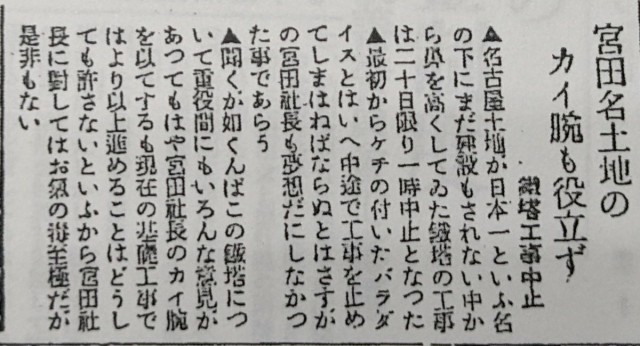 宮田名土地の
カイ腕も役立ず
鐵塔工事中止
▲名古屋土地が日本一といふ名
の下にまだ建設もされない中か
ら鼻を高くしてゐた鐵塔の工事
は二十日限り一時中止となつた
▲最初からケチの付いたパラダ
イスとはいへ中途で工事を止め
てしまはねばならぬとはさすが
の宮田社長も夢想だにしなかつ
た事であらう
▲聞くが如くんばこの鐵塔につ
いて重役間にもいろんな意見が
あつてもはや宮田社長のカイ腕
を以てするも現在の基礎工事で
はより以上進めることはどうし
ても許さないといふから宮田社
長に對してはお氣の毒至極だが
是非もない